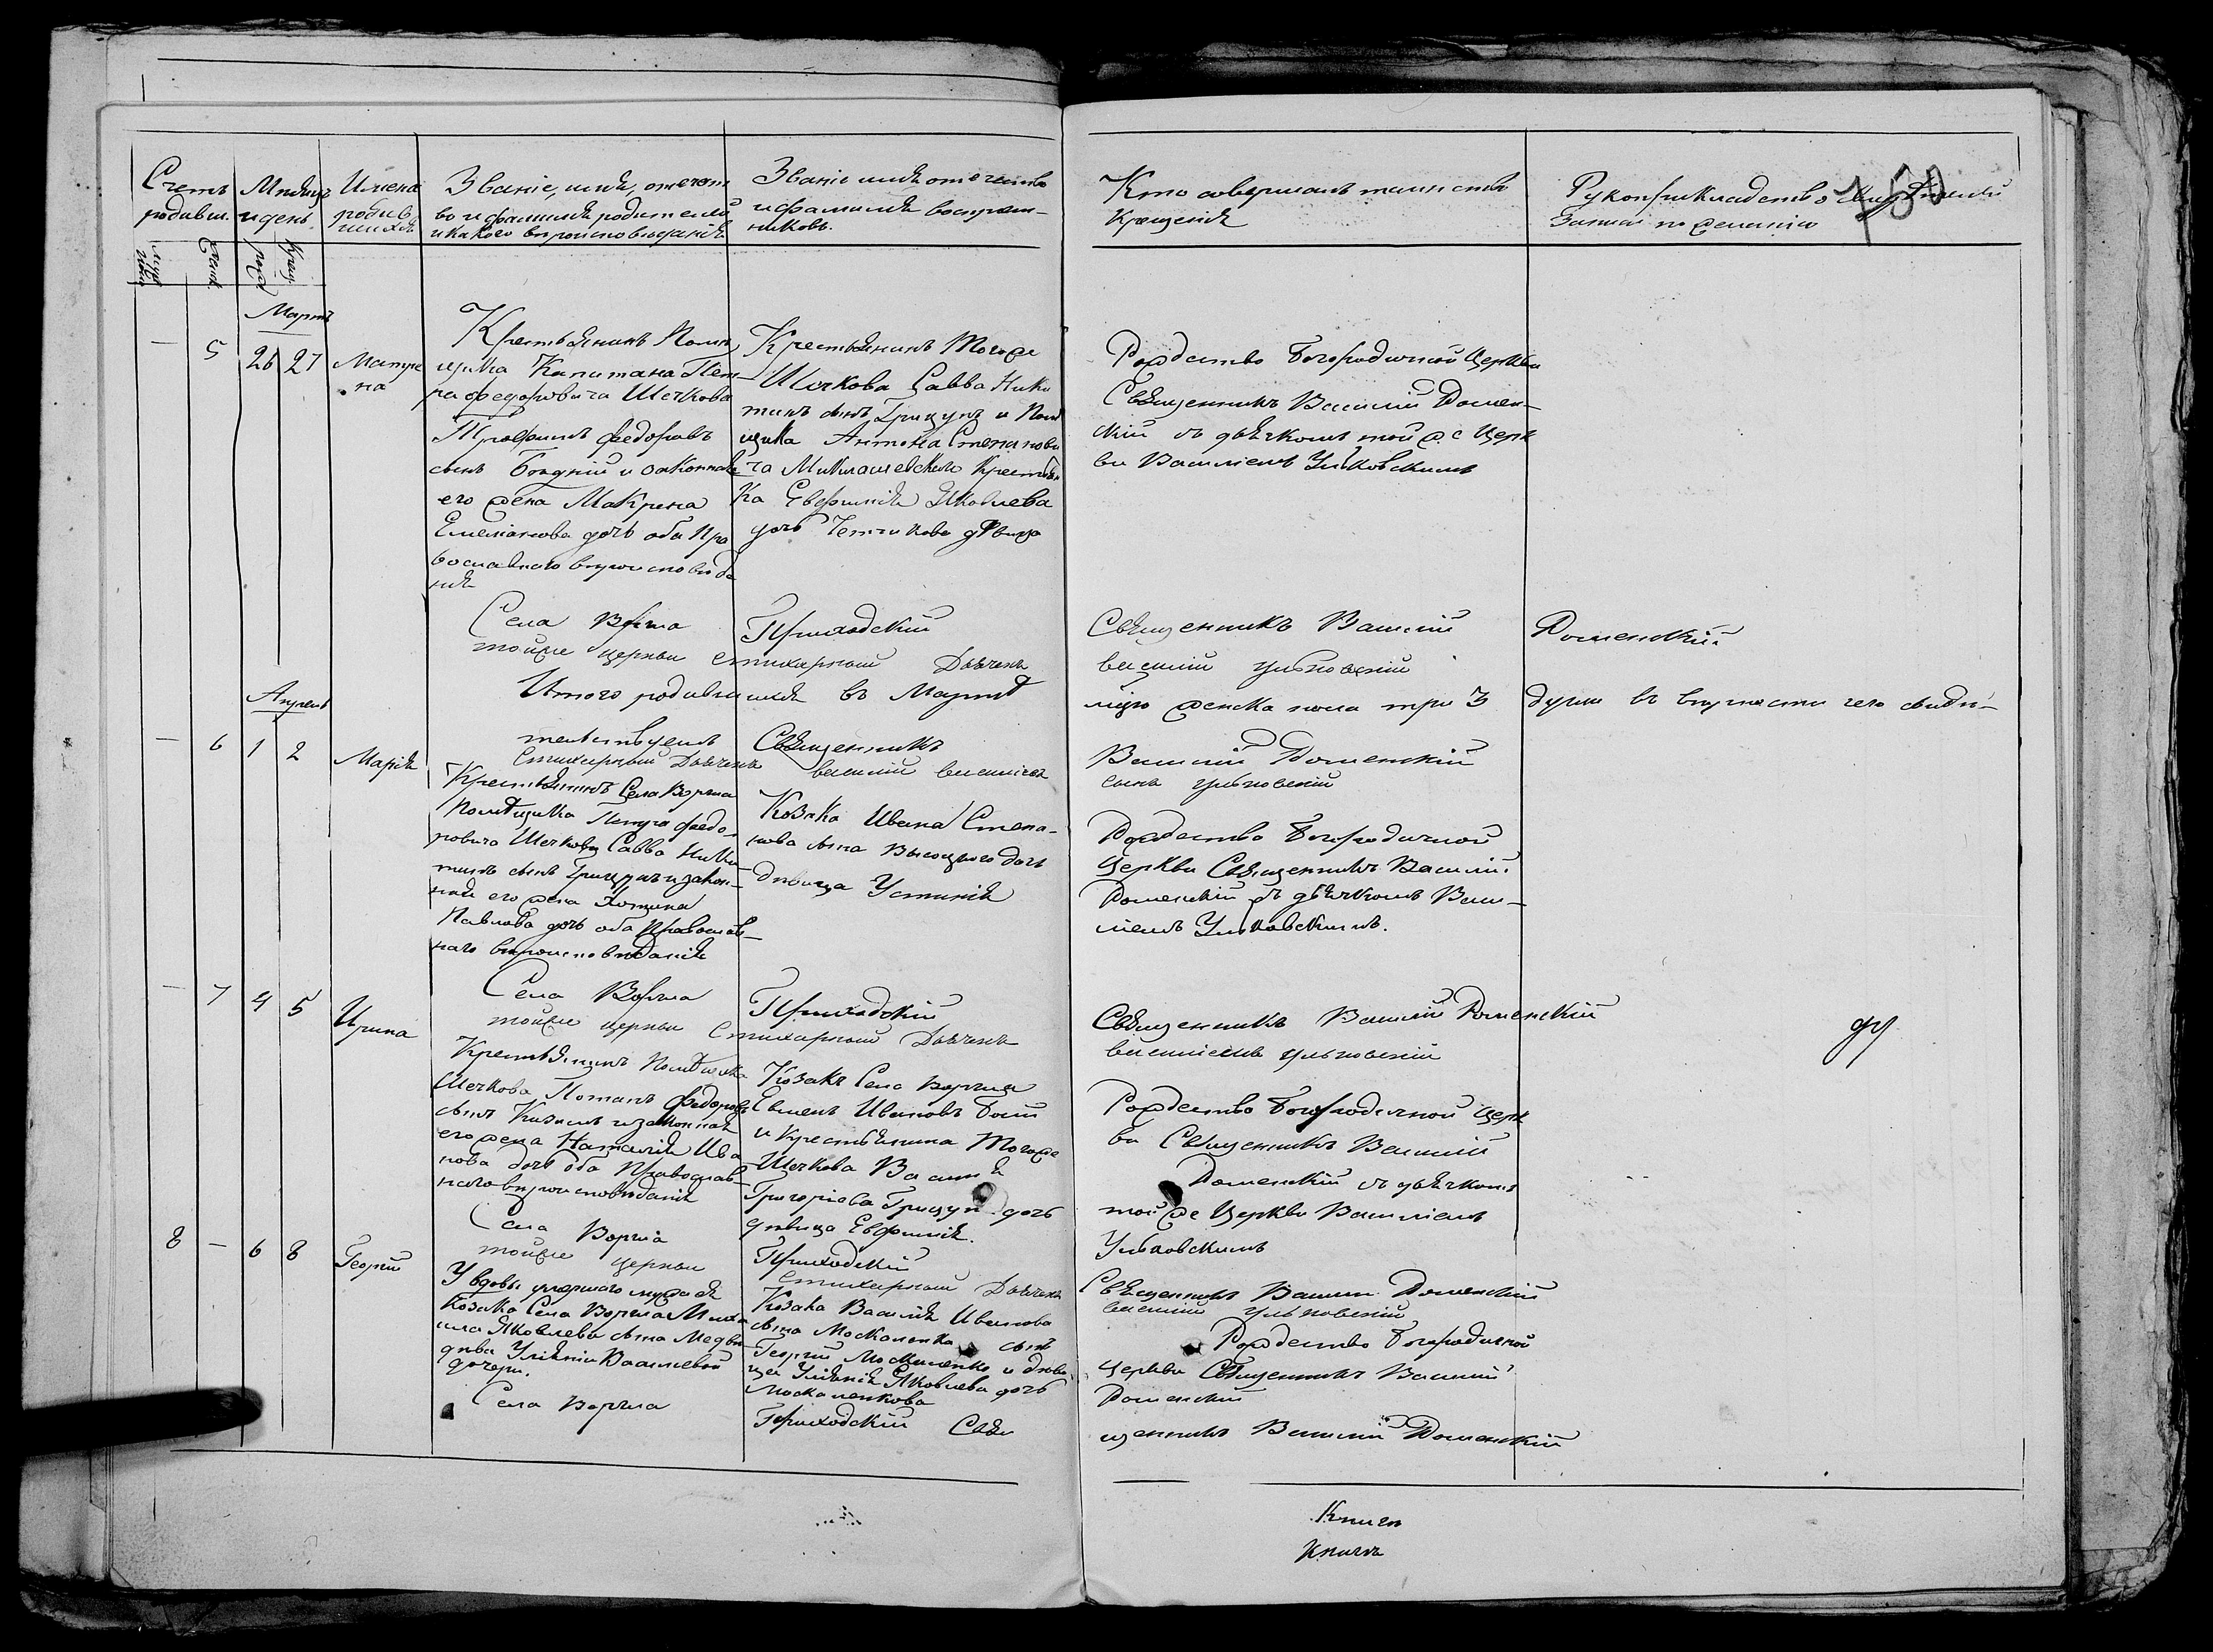 Счетъ родивш.
Мѣсяцъ и день.
Имена родив шихся
Званіе, имя, отечест
во и фамилія родителей
и какого вѣроисповѣданія
Званіе имя отечество
и фамилія воспріем-
никовъ.
Кто совершалъ таинство
Крещенія
Рукоприкладство
записи по желанію
Мартъ
— 5 26 27 Матре
на
Крестьянинъ Помѣ
щика Капитана Пет
ра Федоровича Шечкова
Трофимъ Федоровъ
сынъ Бѣдній и законная
его жена Макрина
Емеліанова дочь оба Пра
вославнаго вѣроисповѣда
нія
Крестьянинъ Тогоже
Шечкова Савва Ники
тинъ сынъ Грицунъ и Помѣ
щика Антона Степанови
ча Миклашевскаго Крестьян
ка Евфимія Яковлева
дочь дѣвица
Рождество Богородичной Церкви
Священникъ Василій Домен-
скій съ дьячкомъ той же Церк
ви Василіемъ Ульковскимъ
Села Воргла Приходскій Священникъ Василій Доменскій
тойже церкви Стихарный Дьячекъ василій ульковскій
Итого родившихся въ Мартѣ мцѣ женска пола три 3 души въ вѣрности чего свидѣ-
тельствуемъ Священникъ Василій Доменскій
Стихарный Дьячекъ василій василіевъ сынъ ульковскій
Апрель
— 6 1 2 Марія
Крестьянинъ Села Воргла
Помѣщика Петра Федо-
ровича Шечкова Савва Ники
тинъ сынъ Грицунъ и закон-
ная его жена
Павлова дочь оба Православ-
наго вѣроисповѣданія
Козака Ивана Степа-
нова сына Высоцкого дочь
дѣвица Устинія
Рождество Богородичной
Церкви Священникъ Василій
Доменскій съ дьячкомъ Васи-
лiемъ Ульковскимъ.
Села Воргла Приходскій Священникъ Василій Доменскій
тойже церкви Стихарный Дьячекъ василіевъ ульковскій
— 7 4 5 Ирина
Крестьянинъ Помѣщика
Шечкова Потапъ Федоровъ
сынъ и законная
его жена Наталія Ива
нова дочь оба Православ-
наго вѣроисповѣданія
Козакъ Села Воргла
Евменъ Ивановъ
и Крестьянина Тогоже
Шечкова Василія
Григоріева Грицун дочь
дѣвица Евфимія.
Рождество Богородичной Церк
ви Священникъ Василій
Доменскій съ дьячкомъ
той же Церкви Василіемъ
Ульковскимъ
Села Воргла Приходскій Священникъ Василій Доменскій
тойже церкви Стихарный Дьячекъ василій ульковскій
8 — 6 8 Георгій
У вдовы умершаго мужа ея
Козака Села Воргла Миха
ила Яковлева сына Медвѣ
дева Уліяніи Василіевой
дочери.
Козака Василія Иванова
сына Москаленка сынъ
Георгій Москаленко и дѣви
ца Уліянія Яковлева дочь
Москаленкова
Рождество Богородичной
Церкви Священникъ Василій
Доменскій
Села Воргла Приходскій Священникъ Василій Доменскій
Книга
Книга